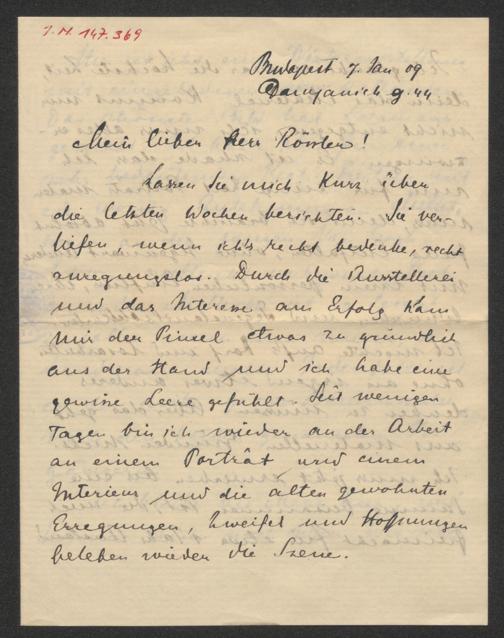 J.N. 147.369
Budapest 7. Jan 09
Damjanich g. 44
Mein lieber Herr Rössler!
Lassen Sie mich Kurz über
die letzten Wochen berichten. Sie ver-
liefen, wenn ich's recht bedenke, recht
anregungslos. Durch die
und das Interesse am Erfolg kam
mir der Pinsel etwas zu gründlich
aus der Hand und ich habe eine
gewisse Leere gefühlt. Seit wenigen
Tagen bin ich wieder an der Arbeit
an einem Porträt und einem
Interieur und die alten gewohnten
Erregungen, Zweifel und Hoffnungen
beleben wieder die Szene.